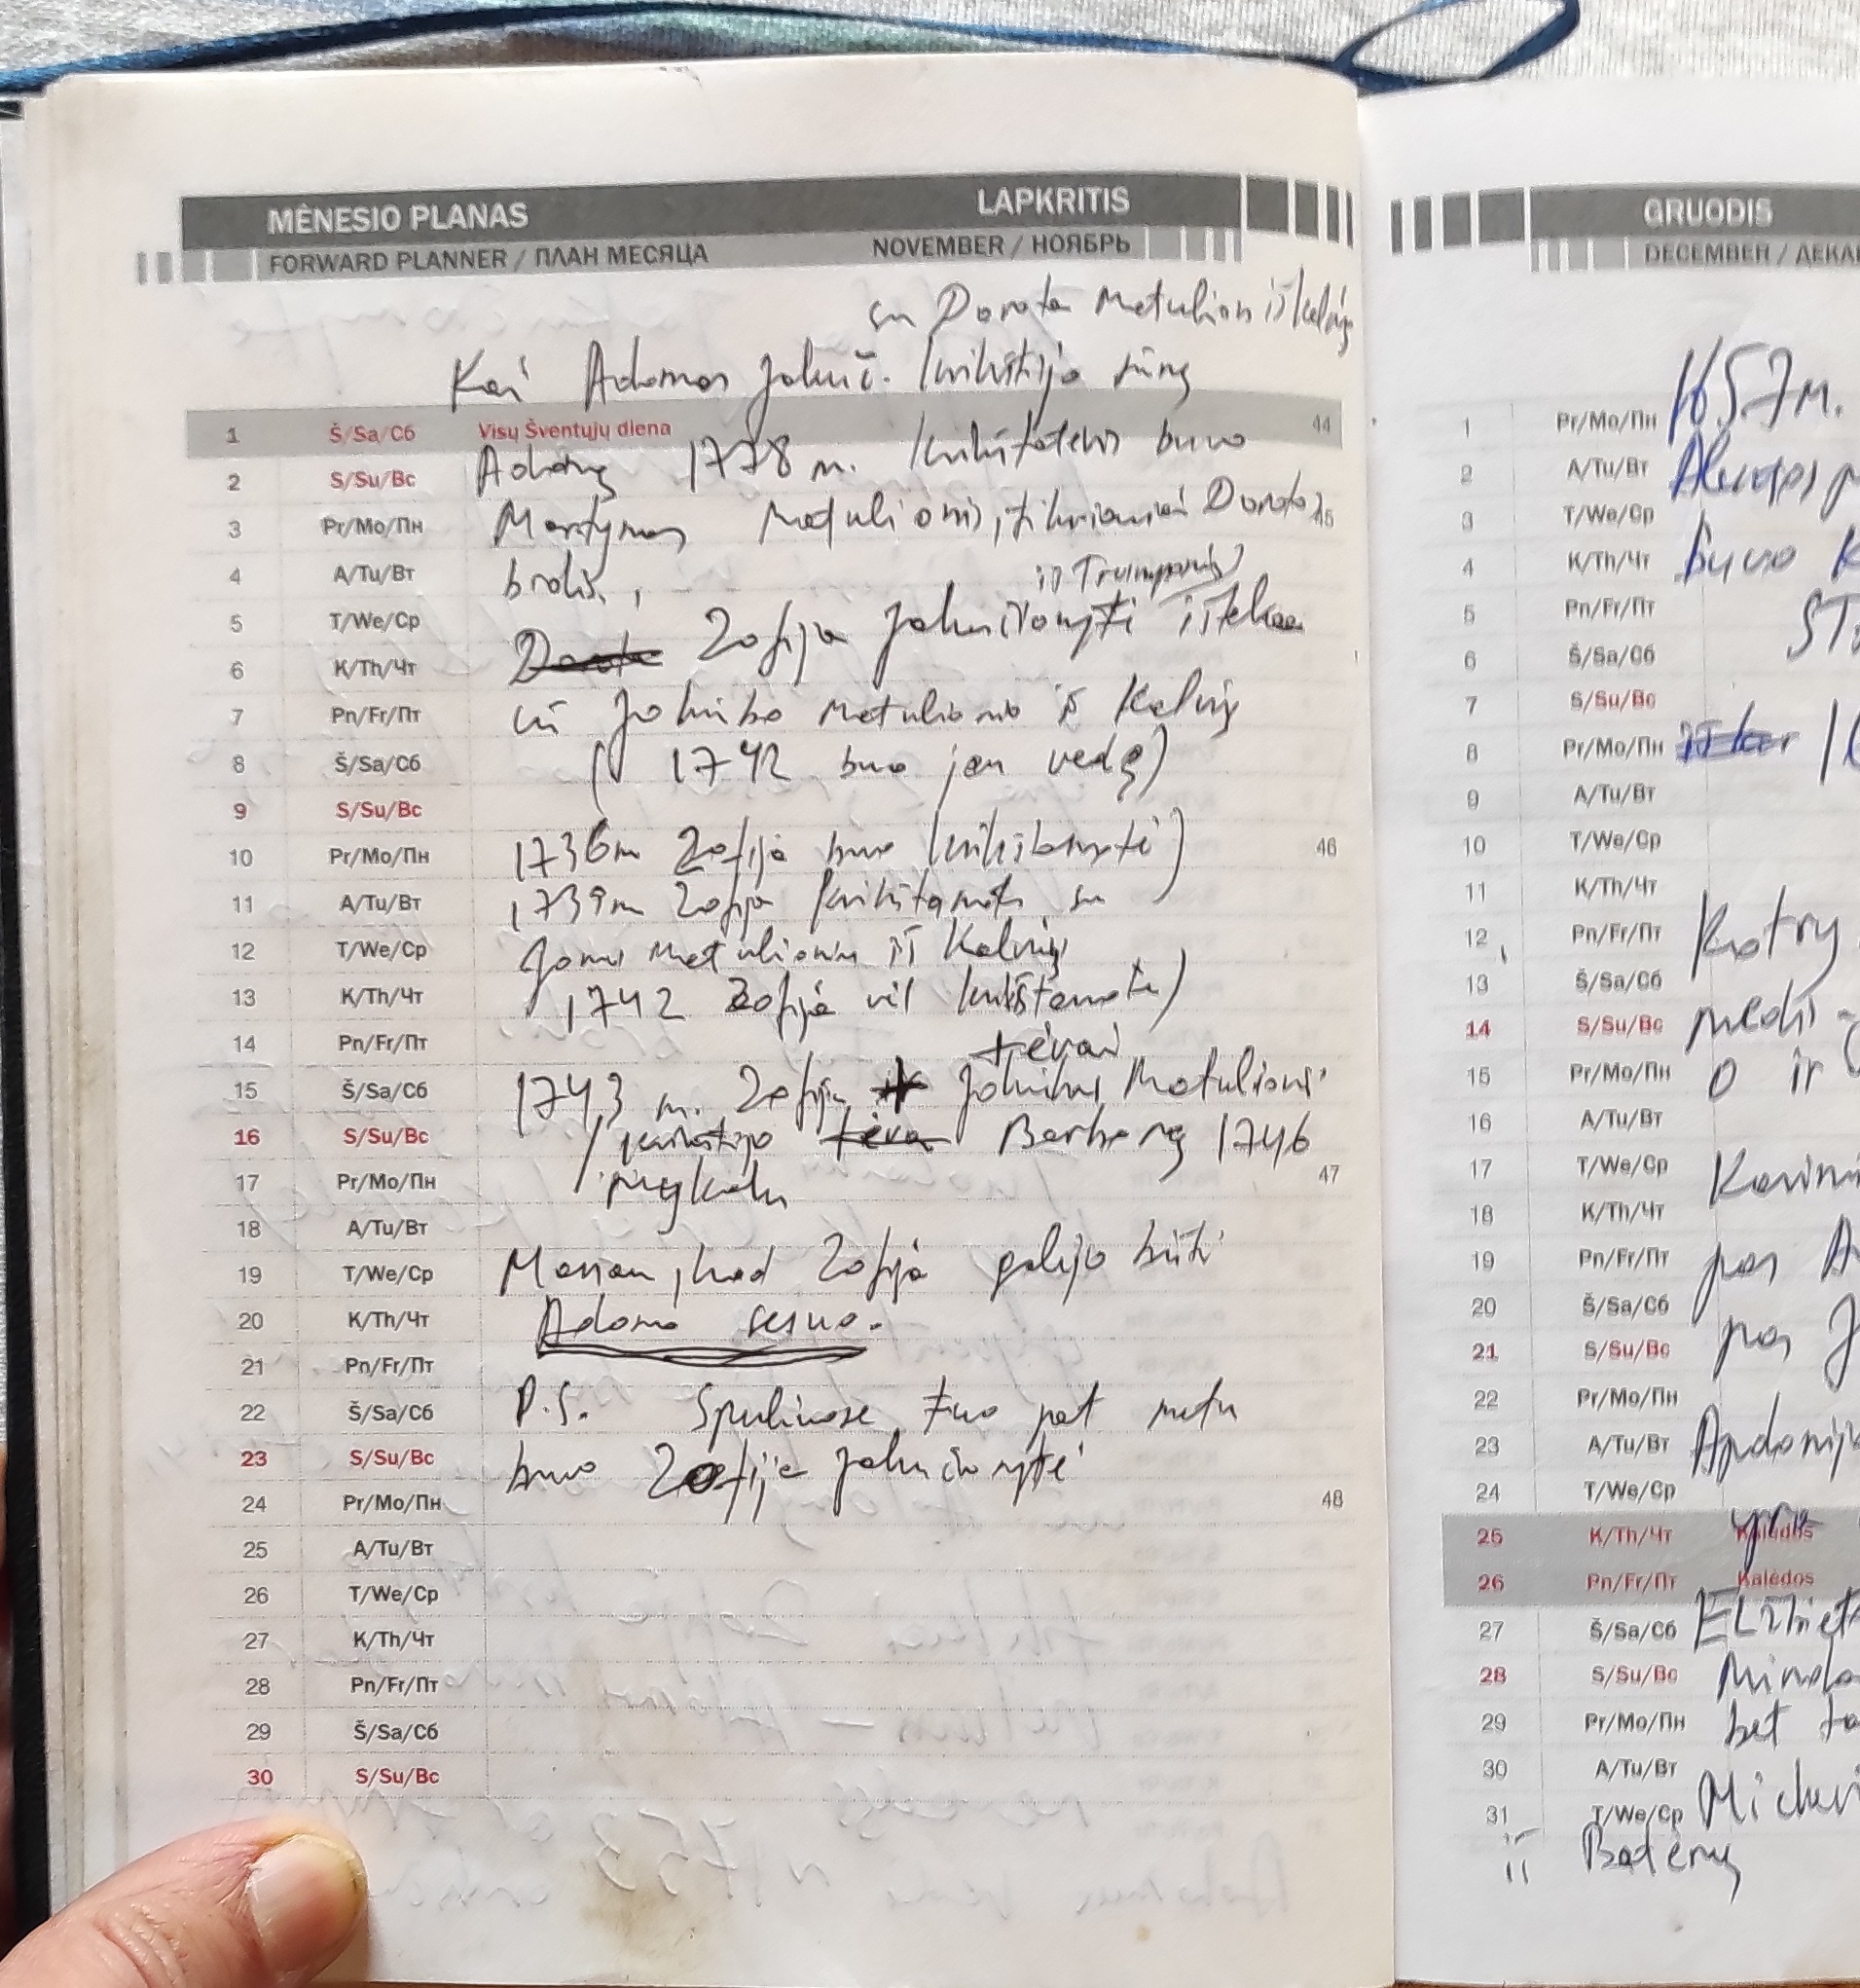 MĖNESIO PLANAS LAPKRITIS
FORWARD PLANNER / ПЛАН МЕСЯЦА NOVEMBER / НОЯБРЬ
su Dorota Matulion iš Kalvių
Kai Adomas Jakuč. krikštijo sūnų
1 Š/Sa/Сб Visų Šventųjų diena 44
Adomą 1778 m. krikštatėvis buvo
2 S/Su/Вс
3 Pr/Mo/Пн Martynas Matulionis, tikriausiai Dorotos 45
4 A/Tu/Вт brolis.
iš Trumponių
5 T/We/Ср
6 K/Th/Чт Zofija Jakučionytė ištekėo
7 Pn/Fr/Пт už Jokūbo Matulionio iš Kalvių
8 Š/Sa/Сб ( 1742 buvo jau vedę)
9 S/Su/Вс
10 Pr/Mo/Пн 1736m Zofija buvo 46
11 A/Tu/Вт 1739m Zofija krikštamotė su
12 T/We/Ср Jonu Matulioniu iš Kalvių
13 K/Th/Чт 1742 Zofija vėl krikštamotė)
14 Pn/Fr/Пт tėvai
15 Š/Sa/Сб 1743 m. Zofija ir Jokūbas Matulionis
16 S/Su/Вс krikštijo tėva Barborą 1746
17 Pr/Mo/Пн 47
18 A/Tu/Вт
19 T/We/Ср Manau, kad Zofija galėjo būti
20 K/Th/Чт Adomo sesuo.
21 Pn/Fr/Пт
22 Š/Sa/Сб P.S. Spuliuose tuo pat metu
23 S/Su/Вс buvo Zofija Jakučionytė
24 Pr/Mo/Пн 48
25 A/Tu/Вт
26 T/We/Ср
27 K/Th/Чт
28 Pn/Fr/Пт
29 Š/Sa/Сб
30 S/Su/Вс
GRUODIS
DECEMBER / ДЕКА
1 Pr/Mo/Пн 1657m.
2 A/Tu/Вт
3 T/We/Ср
4 K/Th/Чт buvo K
5 Pn/Fr/Пт
6 Š/Sa/Сб
7 S/Su/Вс
8 Pr/Mo/Пн
9 A/Tu/Вт
10 T/We/Ср
11 K/Th/Чт
12 Pn/Fr/Пт Kotry
13 Š/Sa/Сб
14 S/Su/Вс
15 Pr/Mo/Пн o ir
16 A/Tu/Вт
17 T/We/Ср
18 K/Th/Чт
19 Pn/Fr/Пт pas A
20 Š/Sa/Сб
21 S/Su/Вс pas J
22 Pr/Mo/Пн
23 A/Tu/Вт Apdonij
24 T/We/Ср
25 K/Th/Чт Kalėdos yra
26 Pn/Fr/Пт Kalėdos
27 Š/Sa/Сб Elžbiet
28 S/Su/Вс
29 Pr/Mo/Пн bet ta
30 A/Tu/Вт
31 T/We/Ср
iš Badėnų